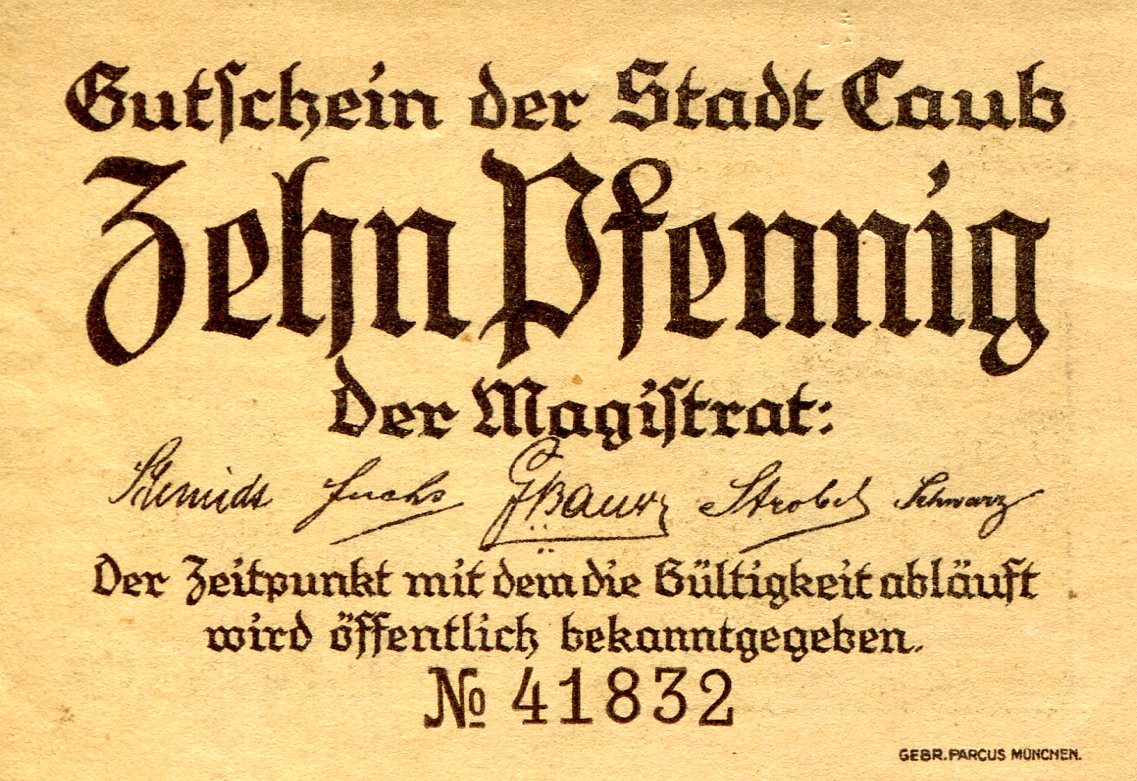 Gutschein der Stadt Caub
Zehn Pfennig
Der Magistrat:
Schmidt Fuchs Strobel Schwarz
Der Zeitpunkt mit dem die Gültigkeit abläuft
wird öffentlich bekanntgegeben.
No 41832
GEBR. PARCUS MÜNCHEN.